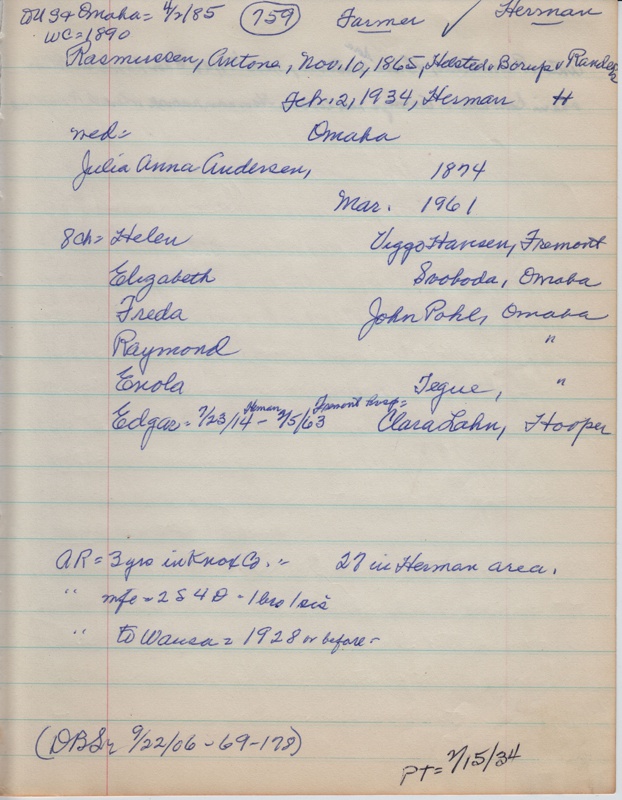 DUS to Omaha = 4/2/85 (759) Farmer ✓ Herman
WC = 1890
Rasmussen, Antone, Nov. 10, 1865, Halsted v Borup v Randers
Feb. 2, 1934, Herman H
med = Omaha
Julia Anna Andersen, 1874
Mar. 1961
8ch = Helen Viggo Hansen, Fremont
Elizabeth Svoboda, Omaha
Freda John Pohl, Omaha
Raymond "
Enola Tegue, "
Herman Fremont hosp =
Edgar = 7/23/14 - 7/5/63 Clara Lahn, Hooper
AR = 3 yrs in Knox Co. " 27 in Herman area.
" mfc = 2 S 4 D - 1 bro 1 sis
" to Wausa = 1928 or before -
(DBSr 9/22/06 - 69-178)
PT = 7/15/34